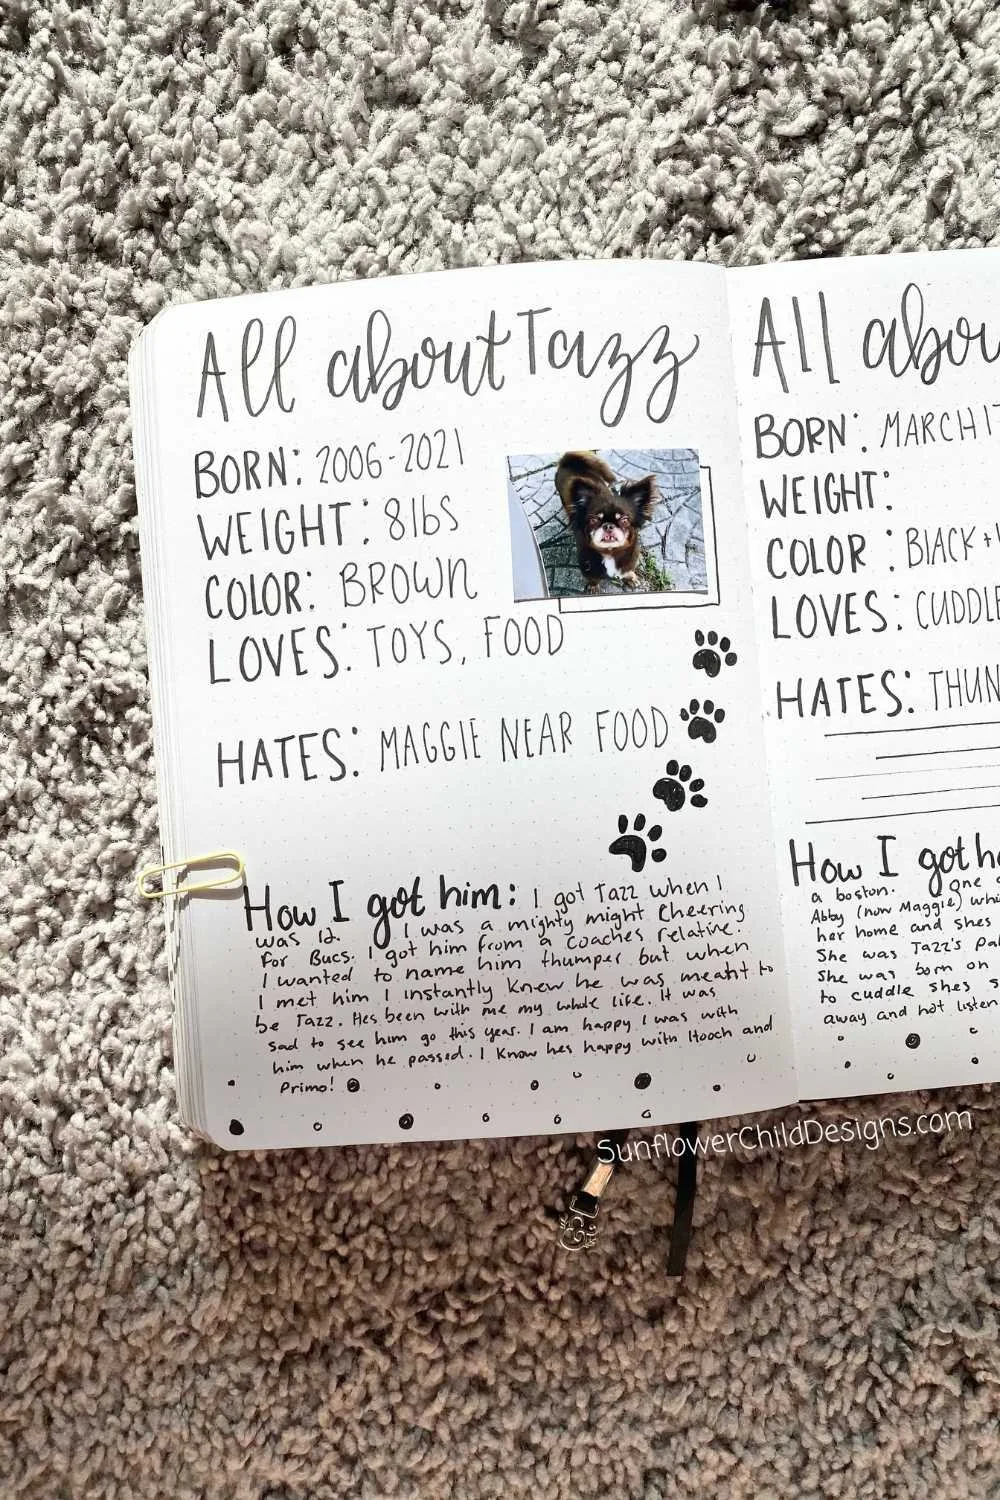 All about Tazz
BORN: 2006-2021
WEIGHT: 8lbs
COLOR: BROWN
LOVES: TOYS, FOOD
HATES: MAGGIE NEAR FOOD
How I got him: I got Tazz when I
was 12. I was a mighty might cheering
for Bucs. I got him from a coaches relative.
I wanted to name him thumper but when
I met him I instantly knew he was meant to
be Tazz. Hes been with me my whole life. It was
sad to see him go this year. I am happy I was with
him when he passed. I know hes happy with Hooch and
Primo!
All abou
BORN: MARCH 17
WEIGHT:
COLOR: BLACK +
LOVES: CUDDLE
HATES: THUN
How I got h
a boston. one
Abby (now Maggie) whi
her home and shes
She was Tazz's pa
She was born on
to cuddle shes s
away and not listen
SunflowerChildDesigns.com